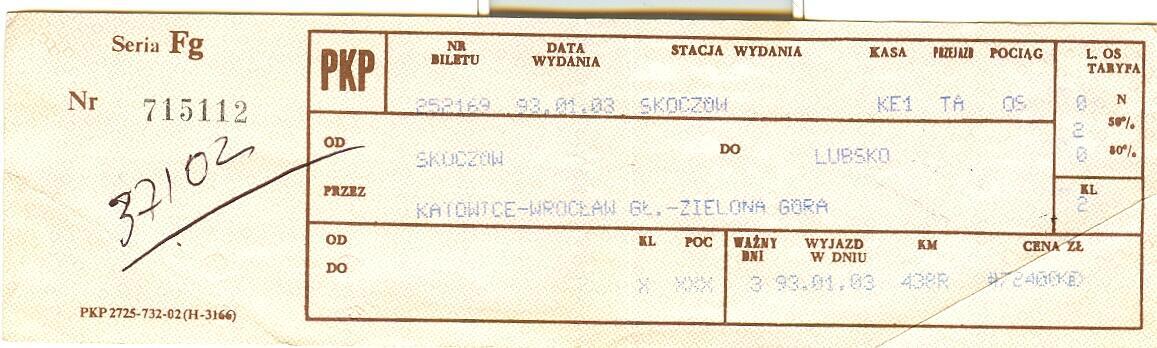 Seria Fg
Nr 715112
37102
PKP 2725-732-02 (H-3166)
PKP
NR BILETU DATA WYDANIA STACJA WYDANIA KASA PRZEJAZD POCIĄG
252169 93.01.03 SKOCZÓW KE1 TA OS
L. OS TARYFA
0 N
2 50%
0 80%
OD SKOCZÓW DO LUBSKO
PRZEZ KATOWICE-WROCŁAW GŁ.-ZIELONA GÓRA
KL
2
OD KL POC
DO X XXX
WAŻNY DNI WYJAZD W DNIU KM CENA ZŁ
3 93.01.03 438R